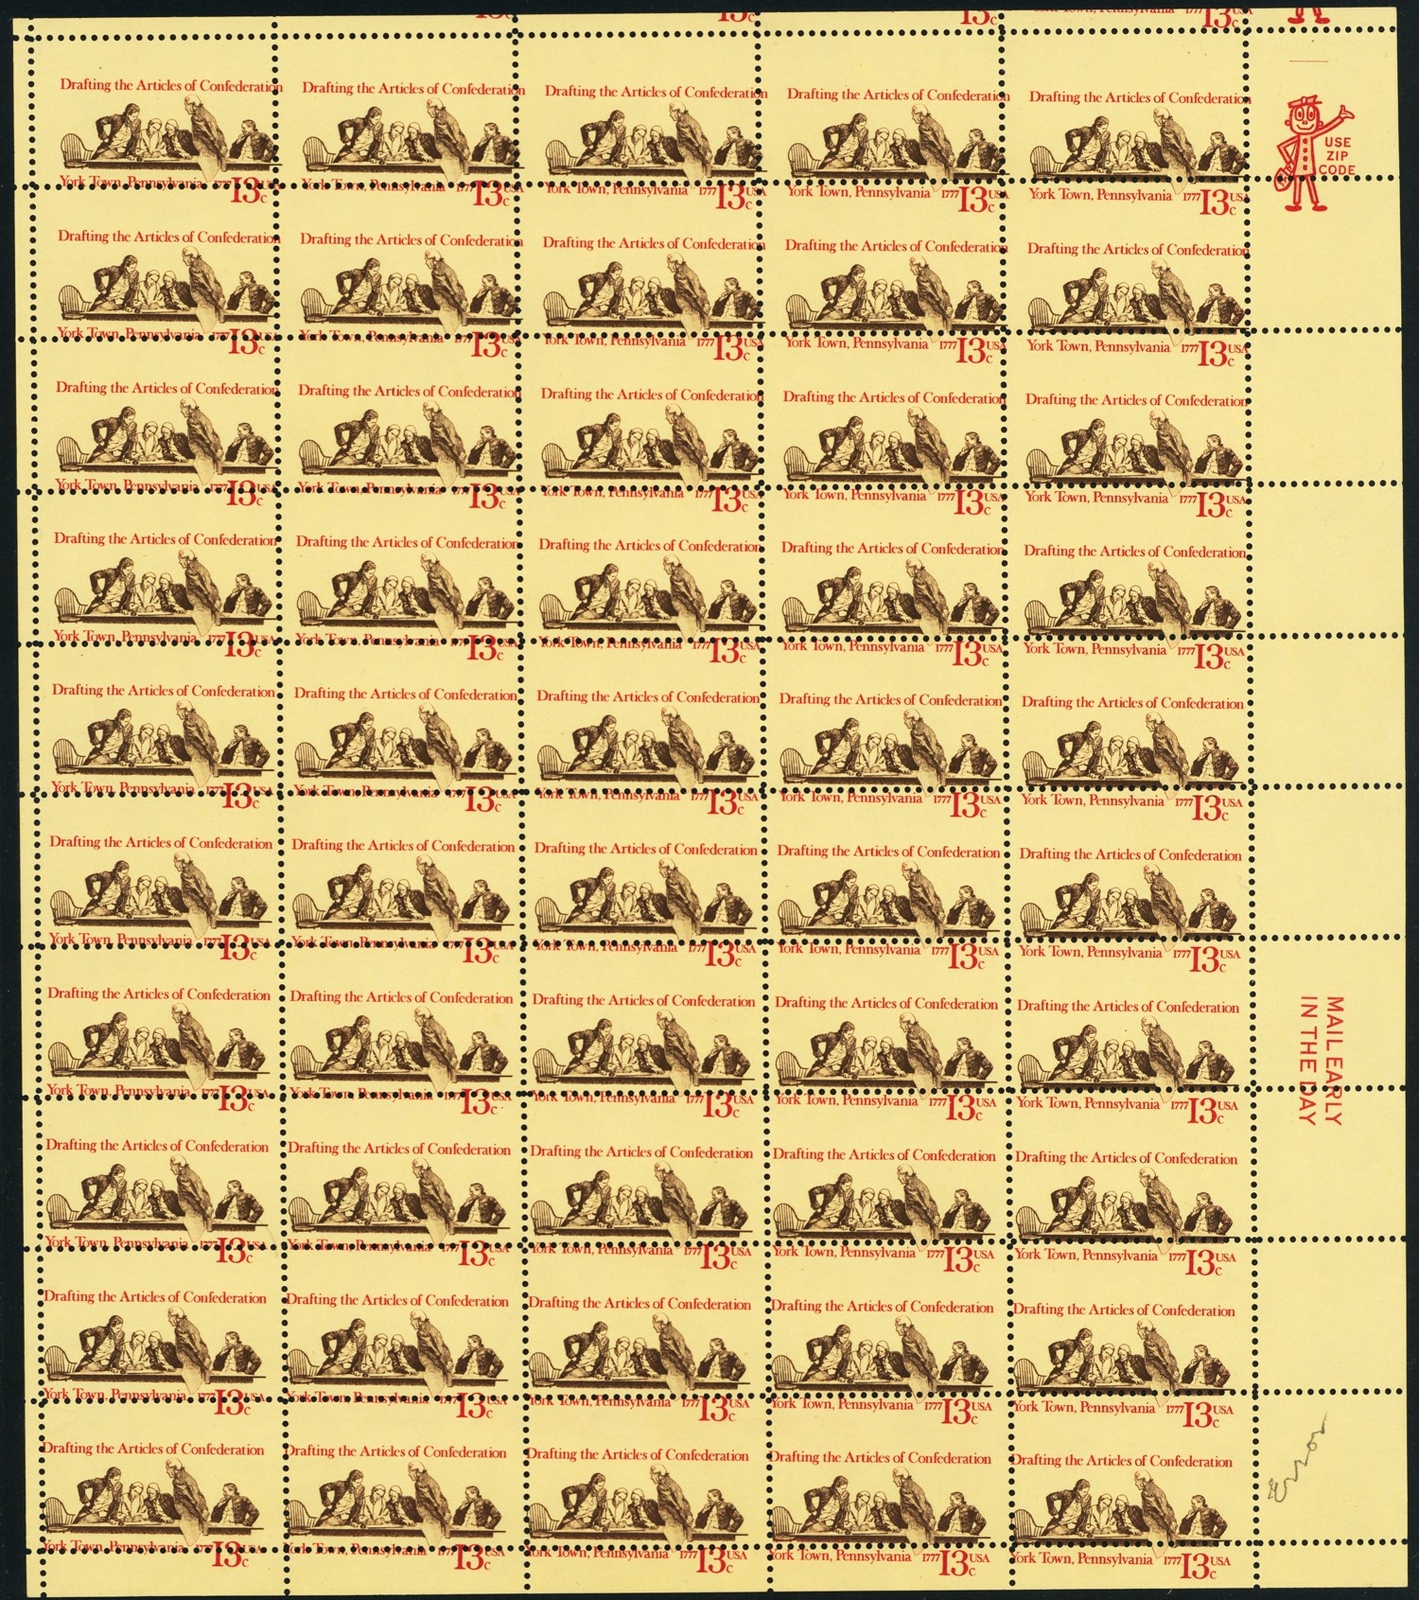 13c 13c 13c 13c
Drafting the Articles of Confederation Drafting the Articles of Confederation Drafting the Articles of Confederation Drafting the Articles of Confederation Drafting the Articles of Confederation
USE
ZIP
CODE
York Town, Pennsylvania 1777 13c USA York Town, Pennsylvania 1777 13c USA York Town, Pennsylvania 1777 13c USA York Town, Pennsylvania 1777 13c USA York Town, Pennsylvania 1777 13c USA
Drafting the Articles of Confederation Drafting the Articles of Confederation Drafting the Articles of Confederation Drafting the Articles of Confederation Drafting the Articles of Confederation
York Town, Pennsylvania 1777 13c USA York Town, Pennsylvania 1777 13c USA York Town, Pennsylvania 1777 13c USA York Town, Pennsylvania 1777 13c USA York Town, Pennsylvania 1777 13c USA
Drafting the Articles of Confederation Drafting the Articles of Confederation Drafting the Articles of Confederation Drafting the Articles of Confederation Drafting the Articles of Confederation
York Town, Pennsylvania 1777 13c USA York Town, Pennsylvania 1777 13c USA York Town, Pennsylvania 1777 13c USA York Town, Pennsylvania 1777 13c USA York Town, Pennsylvania 1777 13c USA
Drafting the Articles of Confederation Drafting the Articles of Confederation Drafting the Articles of Confederation Drafting the Articles of Confederation Drafting the Articles of Confederation
York Town, Pennsylvania 1777 13c USA York Town, Pennsylvania 1777 13c USA York Town, Pennsylvania 1777 13c USA York Town, Pennsylvania 1777 13c USA York Town, Pennsylvania 1777 13c USA
Drafting the Articles of Confederation Drafting the Articles of Confederation Drafting the Articles of Confederation Drafting the Articles of Confederation Drafting the Articles of Confederation
York Town, Pennsylvania 1777 13c USA York Town, Pennsylvania 1777 13c USA York Town, Pennsylvania 1777 13c USA York Town, Pennsylvania 1777 13c USA York Town, Pennsylvania 1777 13c USA
Drafting the Articles of Confederation Drafting the Articles of Confederation Drafting the Articles of Confederation Drafting the Articles of Confederation Drafting the Articles of Confederation
York Town, Pennsylvania 1777 13c USA York Town, Pennsylvania 1777 13c USA York Town, Pennsylvania 1777 13c USA York Town, Pennsylvania 1777 13c USA York Town, Pennsylvania 1777 13c USA
Drafting the Articles of Confederation Drafting the Articles of Confederation Drafting the Articles of Confederation Drafting the Articles of Confederation Drafting the Articles of Confederation
MAIL EARLY
IN THE DAY
York Town, Pennsylvania 1777 13c USA York Town, Pennsylvania 1777 13c USA York Town, Pennsylvania 1777 13c USA York Town, Pennsylvania 1777 13c USA York Town, Pennsylvania 1777 13c USA
Drafting the Articles of Confederation Drafting the Articles of Confederation Drafting the Articles of Confederation Drafting the Articles of Confederation Drafting the Articles of Confederation
York Town, Pennsylvania 1777 13c USA York Town, Pennsylvania 1777 13c USA York Town, Pennsylvania 1777 13c USA York Town, Pennsylvania 1777 13c USA York Town, Pennsylvania 1777 13c USA
Drafting the Articles of Confederation Drafting the Articles of Confederation Drafting the Articles of Confederation Drafting the Articles of Confederation Drafting the Articles of Confederation
York Town, Pennsylvania 1777 13c USA York Town, Pennsylvania 1777 13c USA York Town, Pennsylvania 1777 13c USA York Town, Pennsylvania 1777 13c USA York Town, Pennsylvania 1777 13c USA
Error
Drafting the Articles of Confederation Drafting the Articles of Confederation Drafting the Articles of Confederation Drafting the Articles of Confederation Drafting the Articles of Confederation
York Town, Pennsylvania 1777 13c USA York Town, Pennsylvania 1777 13c USA York Town, Pennsylvania 1777 13c USA York Town, Pennsylvania 1777 13c USA York Town, Pennsylvania 1777 13c USA